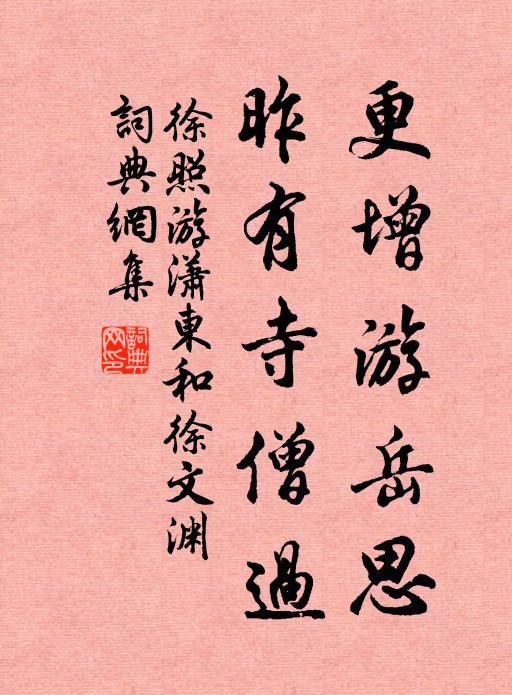 更增游岳思
昨有寺僧過
徐照游瀟東和徐文淵
詞典網集
詞典网印